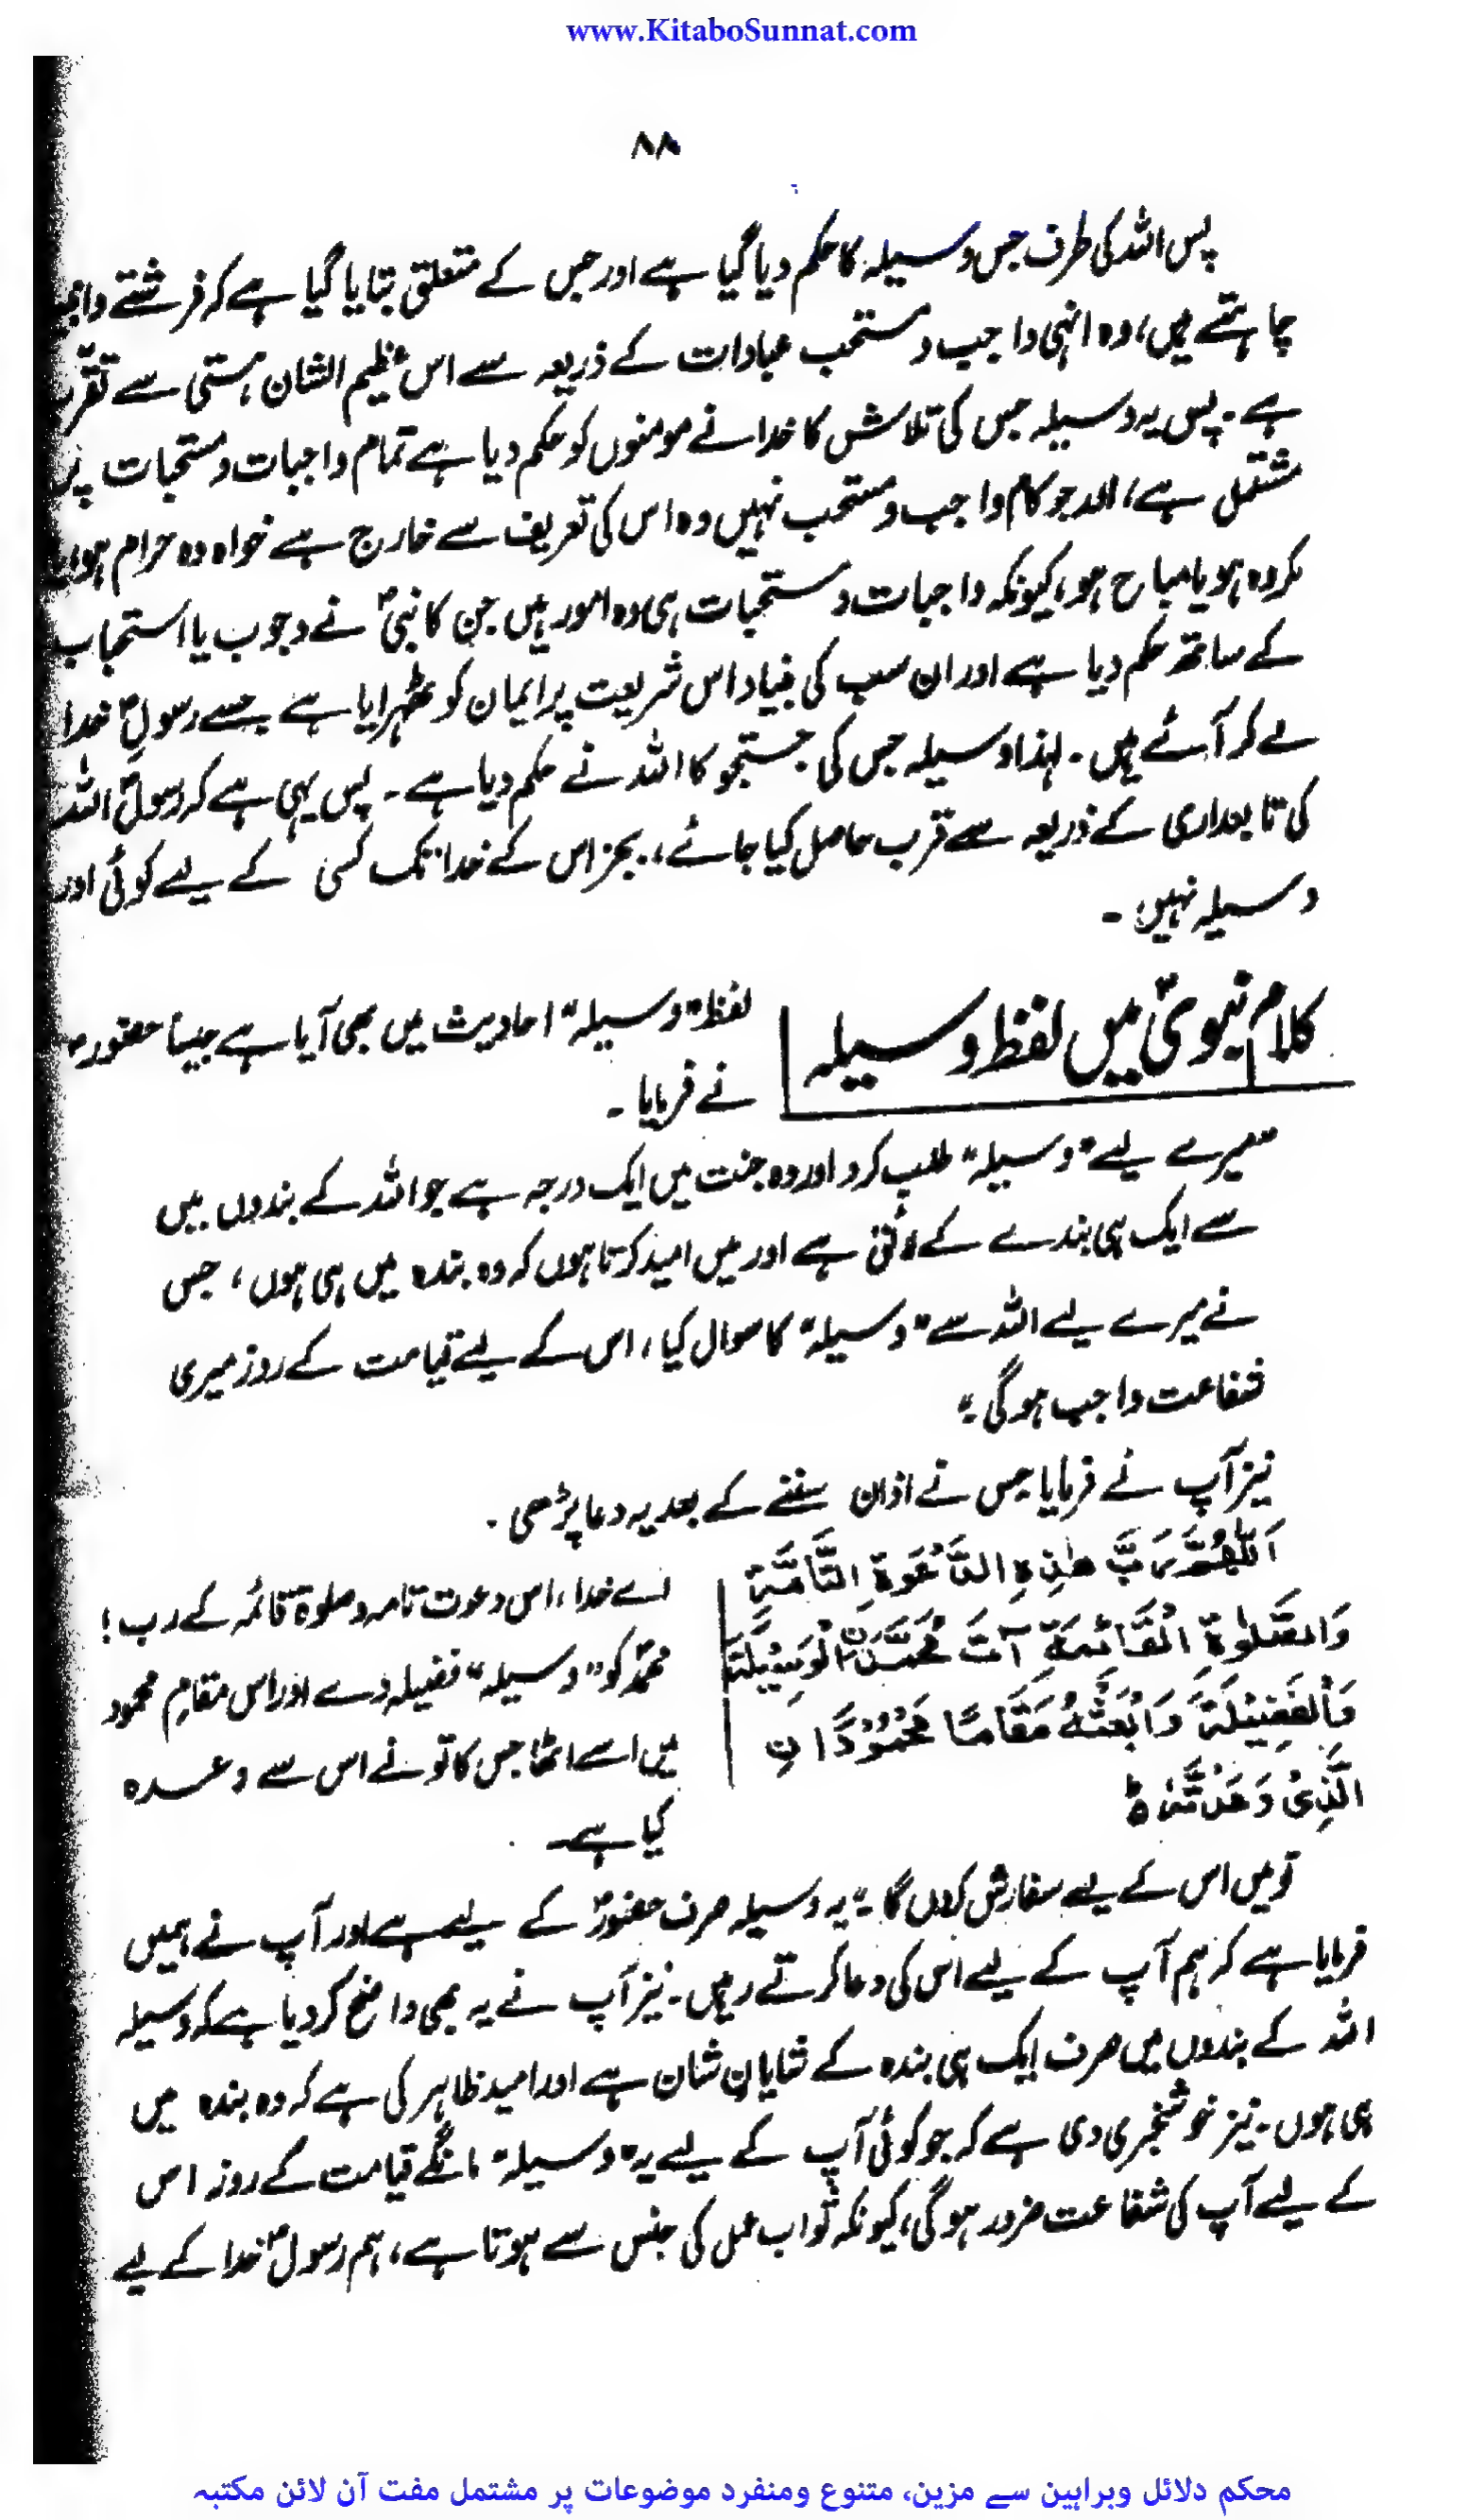 www.KitaboSunnat.com
۸۸
پس اللہ کی طرف جس وسیلہ کا حکم دیا گیا ہے اور جس کے متعلق بتایا گیا ہے کہ فرشتے
چاہتے ہیں، وہ انہی واجب و مستحب عبادات کے ذریعہ سے اس عظیم الشان ہستی سے تقرب
ہے۔ پس یہ وسیلہ جس کی تلاش کا خدا نے مومنوں کو حکم دیا ہے تمام واجبات و مستحبات پر
مشتمل ہے، اور جو کام واجب و مستحب نہیں وہ اس کی تعریف سے خارج ہے خواہ وہ حرام ہو، یا
مکروہ ہو یا مباح ہو، کیونکہ واجبات و مستحبات ہی وہ امور ہیں جن کا نبیؐ نے وجوب یا استحباب
کے ساتھ حکم دیا ہے اور ان سب کی بنیاد اس شریعت پر ایمان کو ٹھہرایا ہے جسے رسولِؐ خدا
لے کر آئے ہیں۔ لہذا وسیلہ جس کی جستجو کا اللہ نے حکم دیا ہے۔ پس یہی ہے کہ رسولؐ اللہ
کی تابعداری کے ذریعہ سے قرب حاصل کیا جائے، بجز اس کے خدا تک کسی کے لیے کوئی اور
وسیلہ نہیں۔
کلام نبویؐ میں لفظ وسیلہ
لفظ "وسیلہ" احادیث میں بھی آیا ہے جیسا حضورؐ
نے فرمایا۔
میرے لیے "وسیلہ" طلب کرو اور وہ جنت میں ایک درجہ ہے جو اللہ کے بندوں میں
سے ایک ہی بندے کے لائق ہے اور میں امید کرتا ہوں کہ وہ بندہ میں ہی ہوں، جس
نے میرے لیے اللہ سے "وسیلہ" کا سوال کیا، اس کے لیے قیامت کے روز میری
شفاعت واجب ہو گی۔"
نیز آپ نے فرمایا جس نے اذان سننے کے بعد یہ دعا پڑھی۔
اَللّٰھُمَّ رَبَّ ھٰذِہِ الدَّعْوَةِ التَّامَّةِ
وَالصَّلٰوةِ الْقَائِمَةِ آتَ مُحَمَّدَنِ الْوَسِیْلَةَ
وَالْفَضِیْلَةَ وَابْعَثْهُ مَقَامًا مَحْمُوْدَانِ
الَّذِیْ وَعَدْتَّهٗ ط
اے خدا، اس دعوت تامہ و صلوٰة قائمہ کے رب!
محمدؐ کو "وسیلہ" فضیلہ دے اور اس مقامِ محمود
میں اسے اٹھا جس کا تو نے اس سے وعدہ
کیا ہے۔
تو میں اس کے لیے سفارش کروں گا۔" یہ وسیلہ صرف حضورؐ کے لیے ہے اور آپ نے ہمیں
فرمایا ہے کہ ہم آپ کے لیے اس کی دعا کرتے رہیں۔ نیز آپ نے یہ بھی واضح کر دیا ہے کہ وسیلہ
اللہ کے بندوں میں صرف ایک ہی بندہ کے شایانِ شان ہے اور امید ظاہر کی ہے کہ وہ بندہ میں
ہی ہوں۔ نیز خوشخبری دی ہے کہ جو کوئی آپ کے لیے یہ "وسیلہ" مانگے قیامت کے روز اس
کے لیے آپ کی شفاعت ضرور ہو گی، کیونکہ ثواب عمل کی جنس سے ہوتا ہے، ہم رسولِؐ خدا کے لیے
محکم دلائل وبراہین سے مزین، متنوع ومنفرد موضوعات پر مشتمل مفت آن لائن مکتبہ